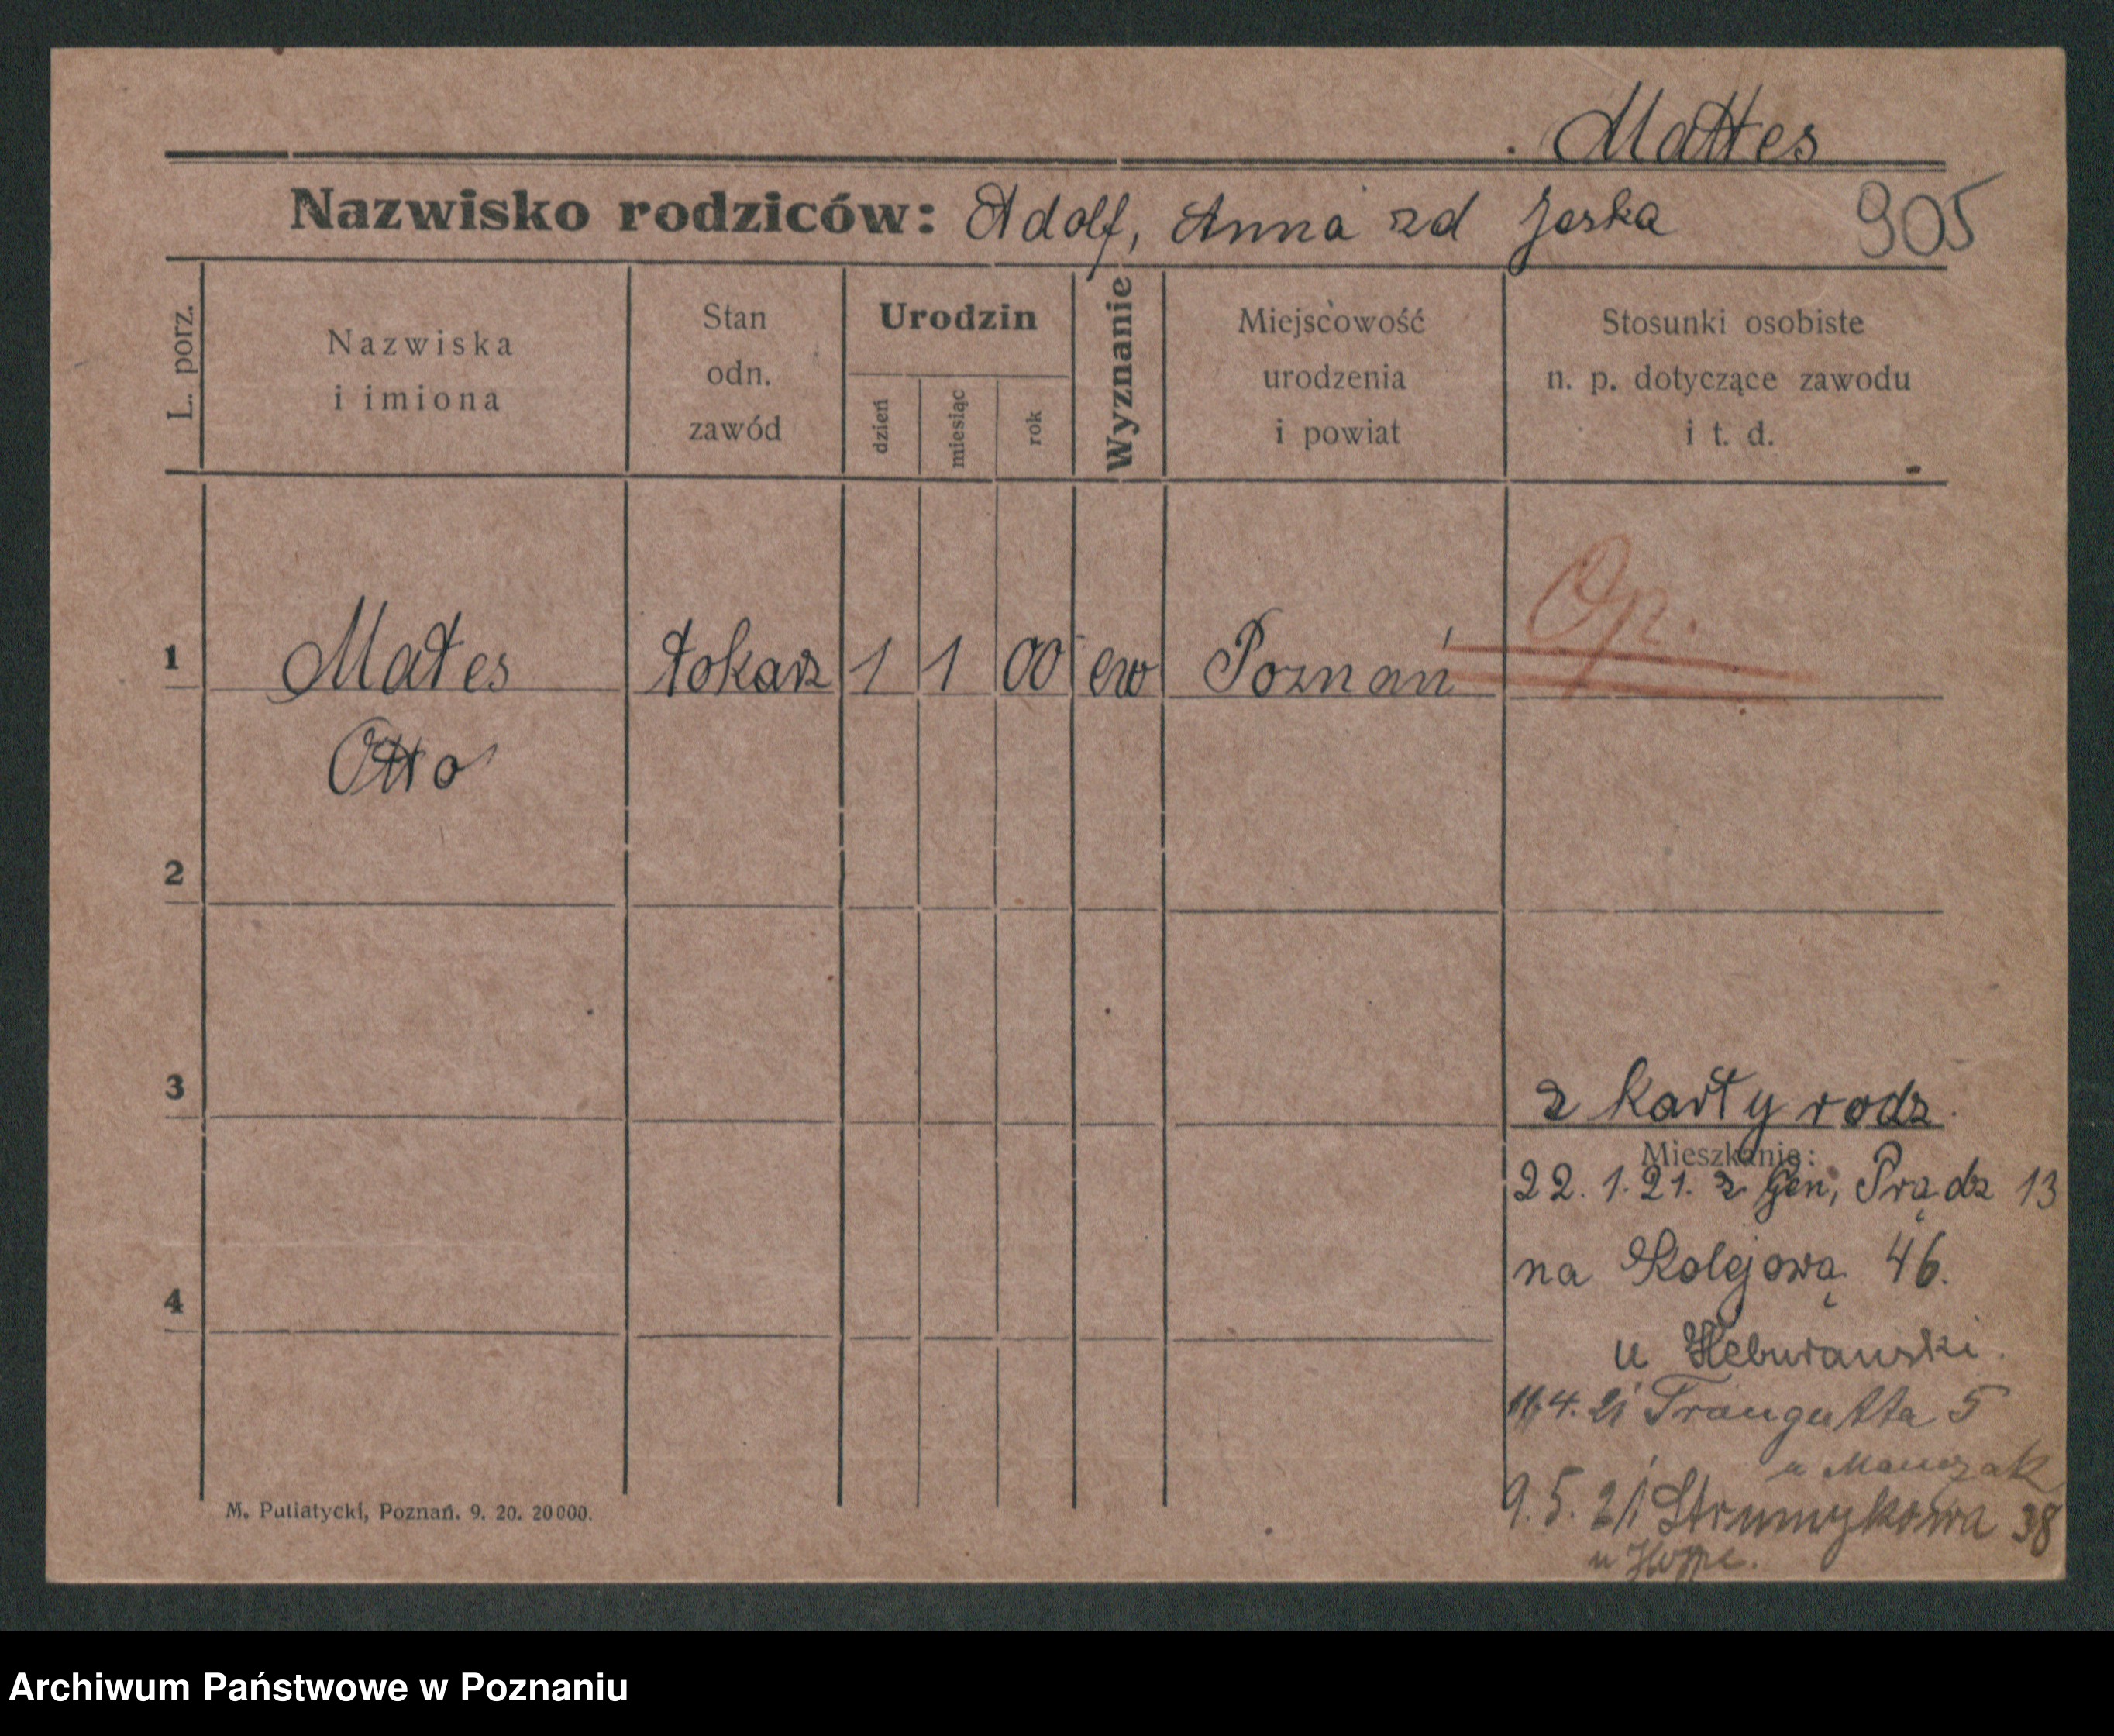 Mattes
Nazwisko rodziców: Adolf, Anna zd Jeska
905
L. porz.
Nazwiska
i imiona
Stan
odn.
zawód
Urodzin
dzień
miesiąc
rok
Wyznanie
Miejscowość
urodzenia
i powiat
Stosunki osobiste
n. p. dotyczące zawodu
i t. d.
1 Mates tokarz 1 1 00 ew Poznań Op.
Otto
2
3
z karty rodz.
Mieszkanie:
22. 1. 21. z Gen, Prądz 13
na Kolejową 46.
4
u
4. 21 Traugutta 5
u
9. 5. 21 Strumykowa 38
u Hoppe.
M. Putiatycki, Poznań. 9. 20. 20000.
Archiwum Państwowe w Poznaniu